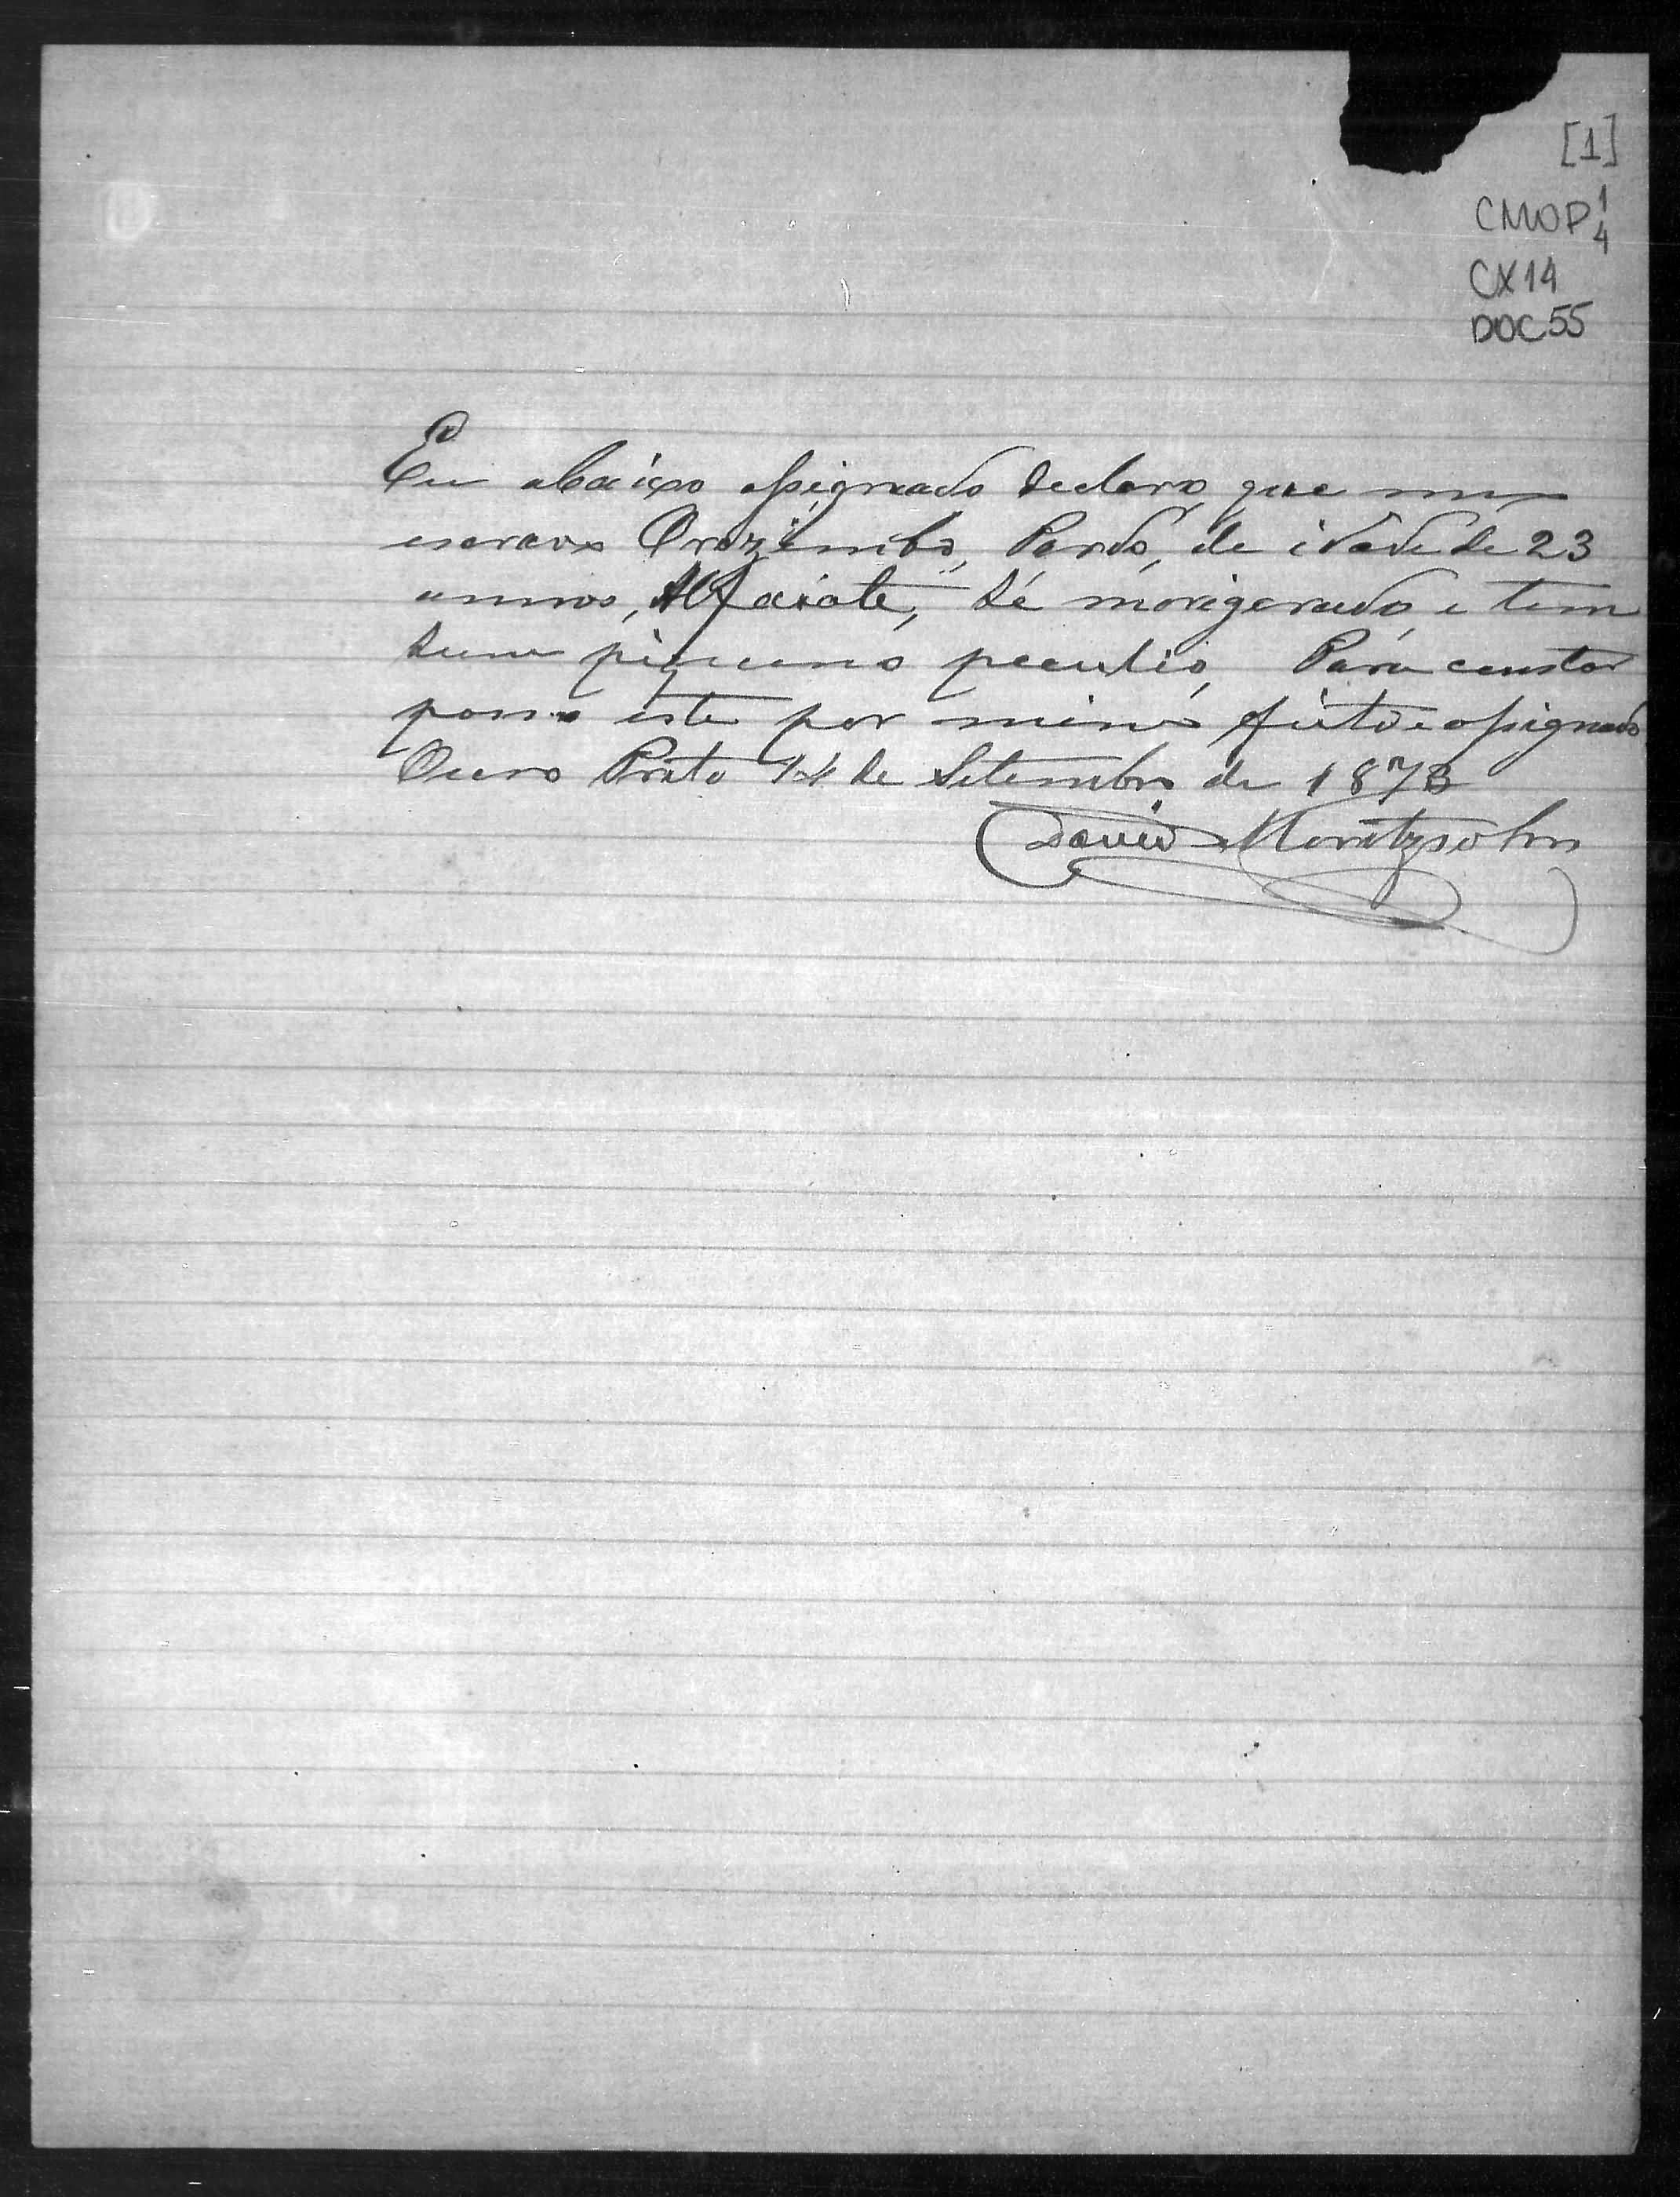 [1]
CMOP 1
4
CX 14
DOC 55
Eu abaixo assignado declaro que meu
escravo Orozimbo, Pardo, de idade de 23
annos, Alfaiate, hé morigerado e tem
hum piqueno peculio, Para constar
passo este por mim feito e assignado
Ouro Preto 14 de Setembro de 1873
David Moretzsohn